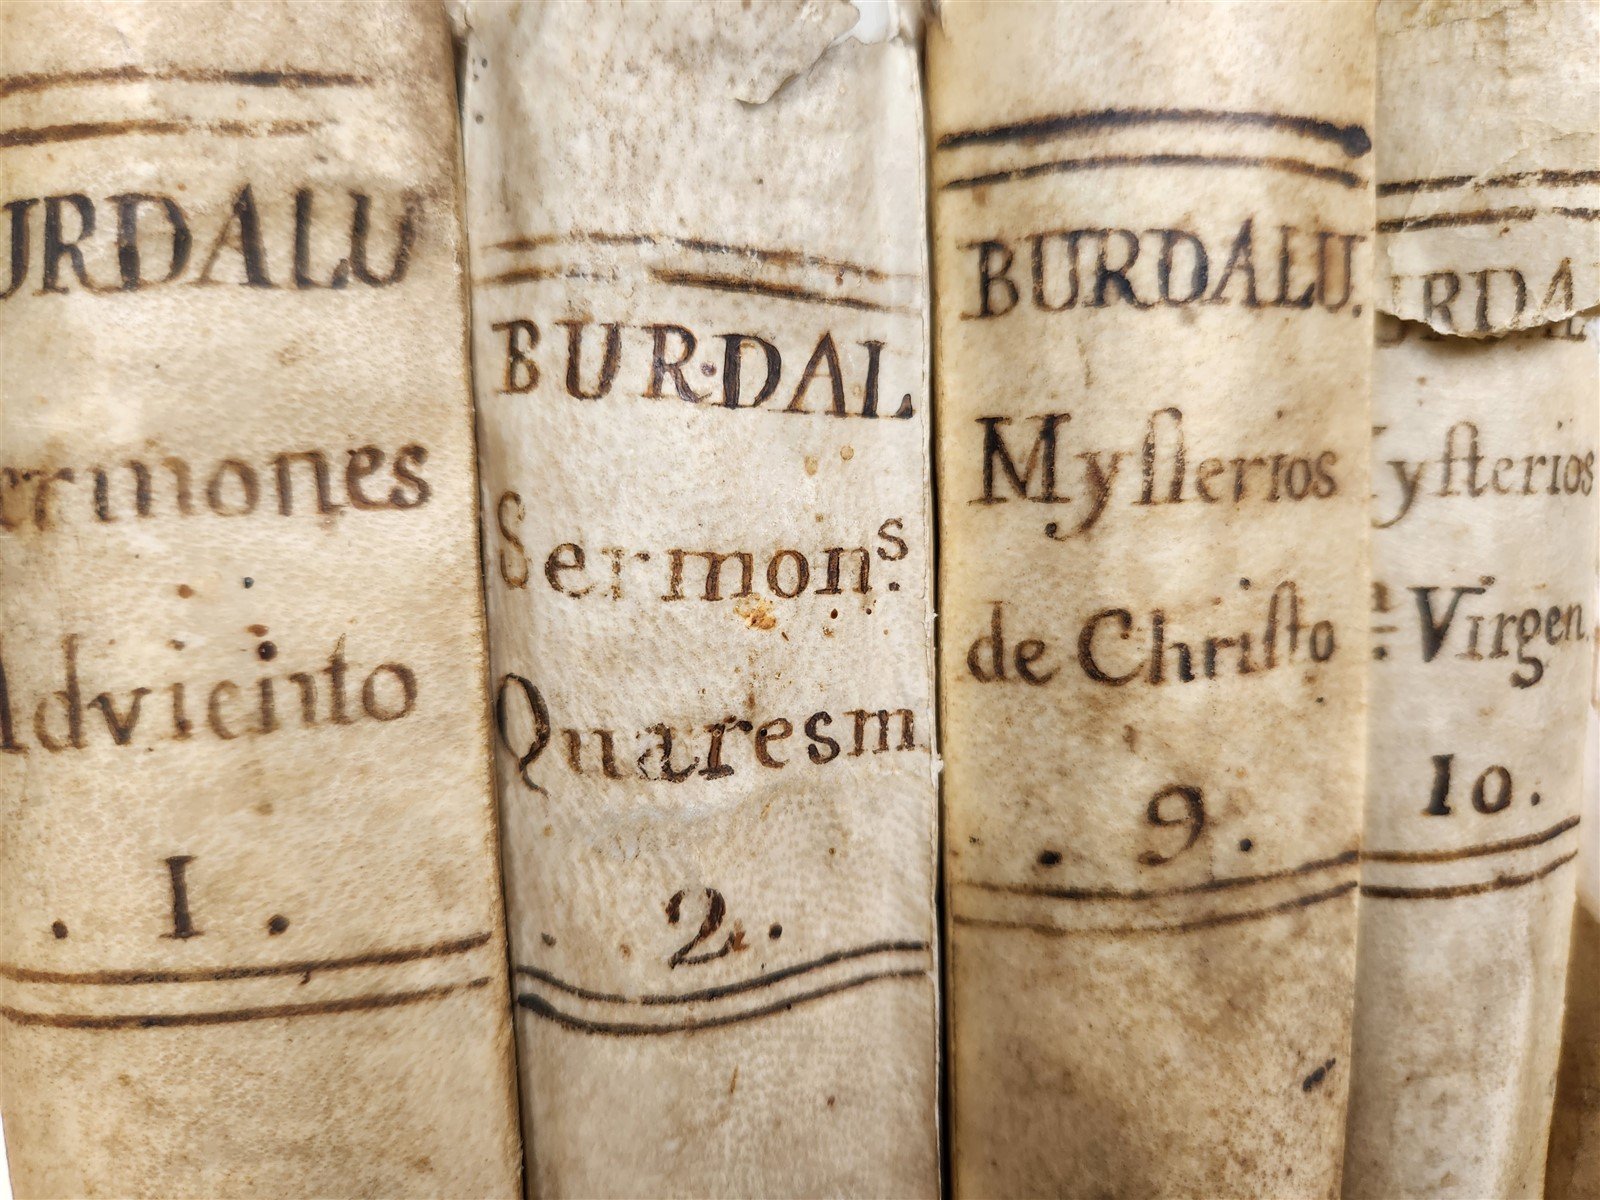 URDALU
ermones
Adviento
. 1 .
BUR·DAL
Sermonˢ.
Quaresm
. 2 .
BURDALU.
Myſterios
de Chriſto
. 9 .
URDAL
yſterios
Virgen.
10.